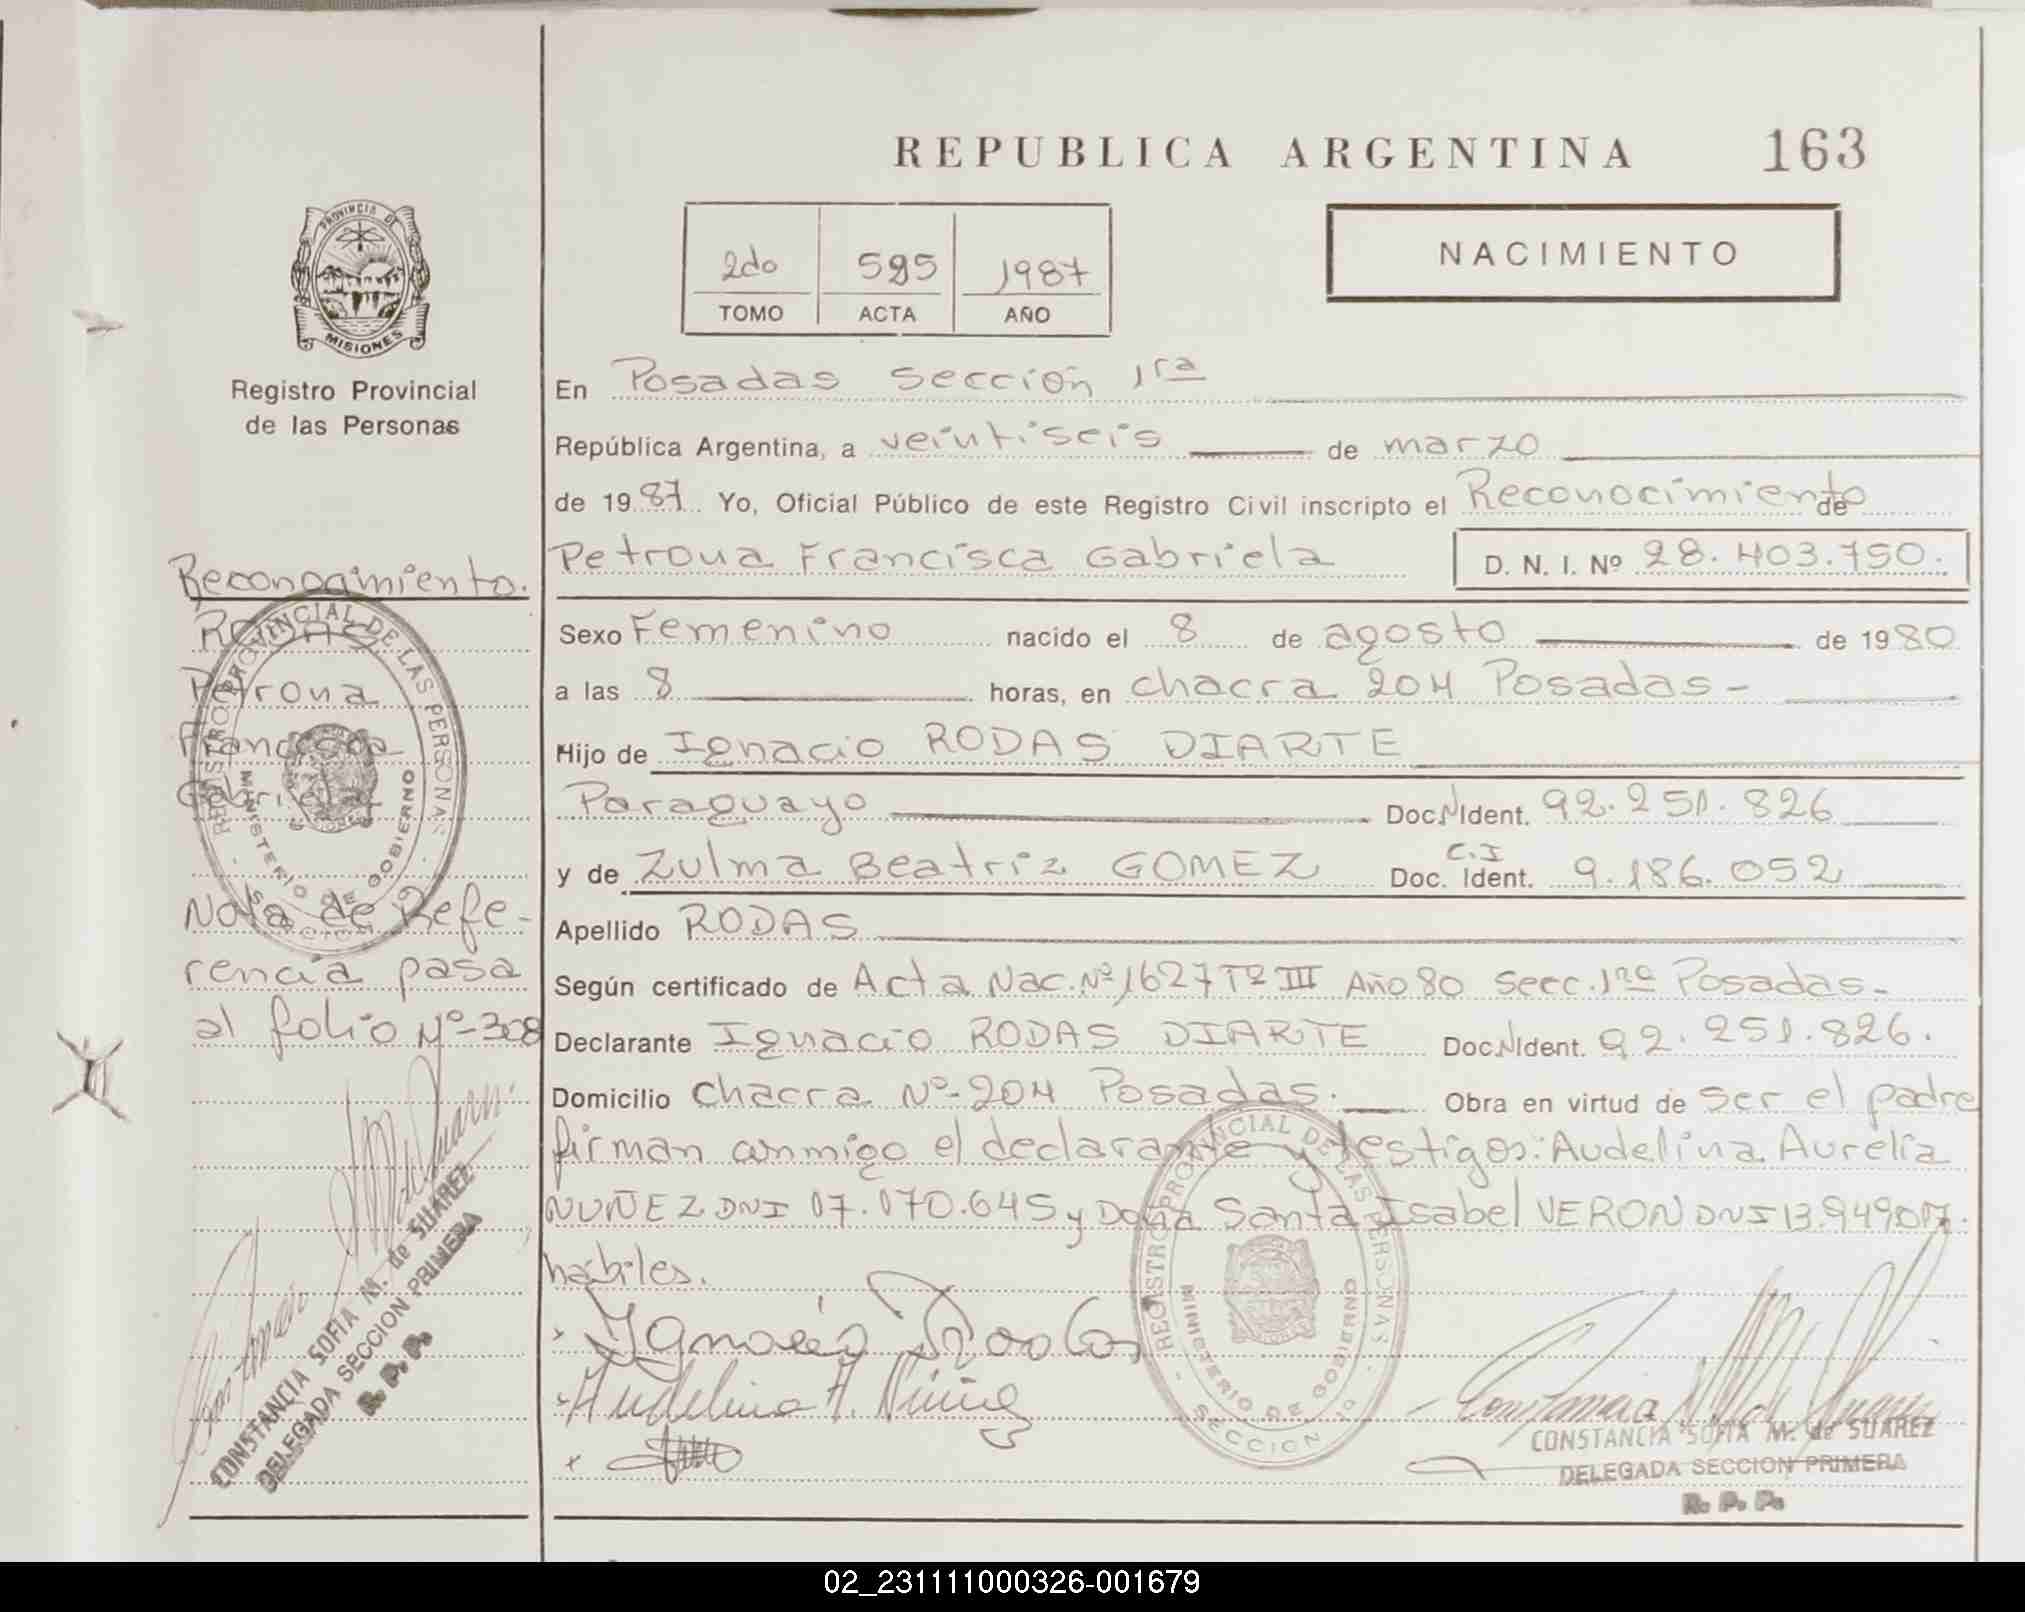 REPUBLICA ARGENTINA 163
PROVINCIA DE
MISIONES
Registro Provincial
de las Personas
2do 595 1987
TOMO ACTA AÑO
NACIMIENTO
En Posadas Sección 1ra
República Argentina, a veintiseis de marzo
de 1987 Yo, Oficial Público de este Registro Civil inscripto el Reconocimiento de
Petrona Francisca Gabriela D. N. I. Nº 28.403.750.
Sexo Femenino nacido el 8 de agosto de 1980
a las 8 horas, en chacra 204 Posadas-
Hijo de Ignacio RODAS DIARTE
Paraguayo Doc. Ident. 92.251.826
y de Zulma Beatriz GOMEZ C.I Doc. Ident. 9.186.052
Apellido RODAS
Según certificado de Acta Nac. Nº 1627 Tº III Año 80 Secc. 1ra Posadas-
Declarante Ignacio RODAS DIARTE Doc. Ident. 92.251.826.
Domicilio chacra Nº-204 Posadas. Obra en virtud de ser el padre
firman conmigo el declarante y testigos: Audelina Aurelia
NUÑEZ DNI 17.170.645 y Doña Santa Isabel VERON DNI 13.949.017.
hábiles.
Ignacio Rodas
Audelina A. Núñez
CONSTANCIA SOFIA M. de SUAREZ
DELEGADA SECCION PRIMERA
R. P. P.
REGISTRO PROVINCIAL DE LAS PERSONAS
MINISTERIO DE GOBIERNO
SECCION 1º
Reconocimiento.
RODAS
Petrona
Francisca
Gabriela
Nota de Refe-
rencia pasa
al folio Nº-308
REGISTRO PROVINCIAL DE LAS PERSONAS
MINISTERIO DE GOBIERNO
CONSTANCIA SOFIA M. de SUAREZ
DELEGADA SECCION PRIMERA
R. P. P.
02_231111000326-001679